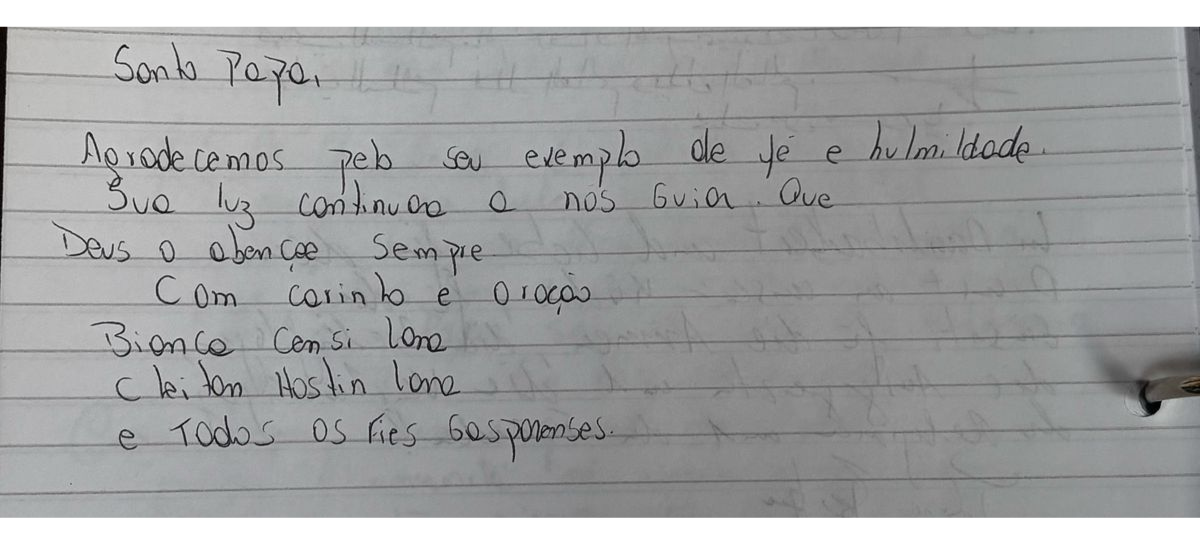 Santo Papa,
Agradecemos pelo seu exemplo de fé e hulmildade.
Sua luz continuaa a nós Guiar. Que
Deus o abençoe sempre
Com carinho e oração
Bianca Censi Lana
Cleiton Hostin Lana
e Todos os Fies Gasparenses.